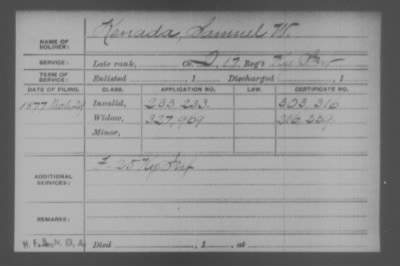 NAME OF SOLDIER: Kenada, Samuel W.
SERVICE: Late rank, Co. D, 17, Reg't Ky. Inf
TERM OF SERVICE: Enlisted , 1 Discharged , 1
DATE OF FILING. CLASS. APPLICATION NO. LAW. CERTIFICATE NO.
1877 Invalid, 233 233. 303 316
Widow, 327,969 316 239
Minor,
ADDITIONAL SERVICES: F 25 Ky Inf
REMARKS:
Died , 1 , at